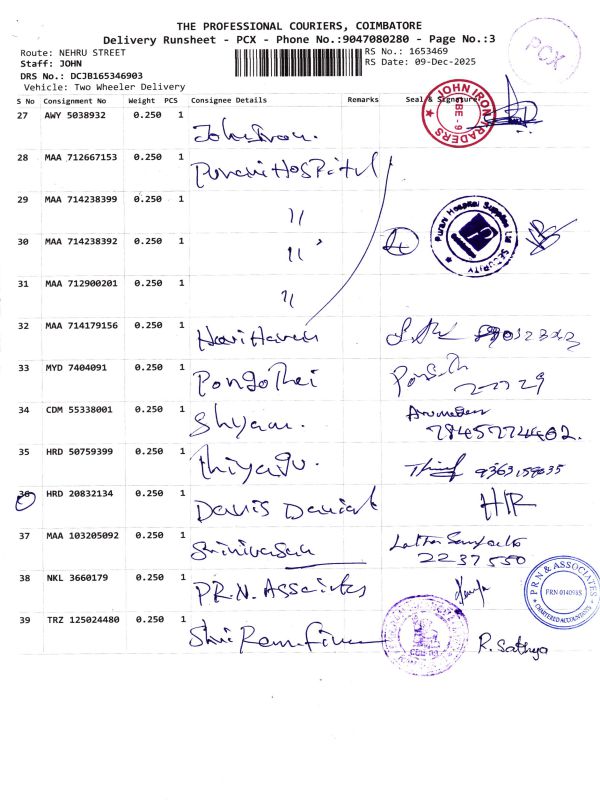 THE PROFESSIONAL COURIERS, COIMBATORE
Delivery Runsheet - PCX - Phone No.:9047080280 - Page No.:3
PCX
Route: NEHRU STREET
RS No.: 1653469
Staff: JOHN
RS Date: 09-Dec-2025
DRS No.: DCJB165346903
Vehicle: Two Wheeler Delivery
S No Consignment No Weight PCS Consignee Details Remarks Seal & Signature
27 AWY 5038932 0.250 1
JOHN IRON TRADERS CBE-9
28 MAA 712667153 0.250 1 Purani Hospital
29 MAA 714238399 0.250 1 "
30 MAA 714238392 0.250 1 " 4
Purani Hospital Supplies SECURITY
31 MAA 712900201 0.250 1 "
32 MAA 714179156 0.250 1
33 MYD 7404091 0.250 1
34 CDM 55338001 0.250 1 Shyam.
35 HRD 50759399 0.250 1 Thiyagu. 9363159035
36 HRD 20832134 0.250 1 Davis Daniel
37 MAA 103205092 0.250 1 Srinivasan
2237550
38 NKL 3660179 0.250 1 P.R.N. Associates
P R N & ASSOCIATES FRN 014093S CHARTERED ACCOUNTANTS
39 TRZ 125024480 0.250 1 Shri Ram
R. Sathya